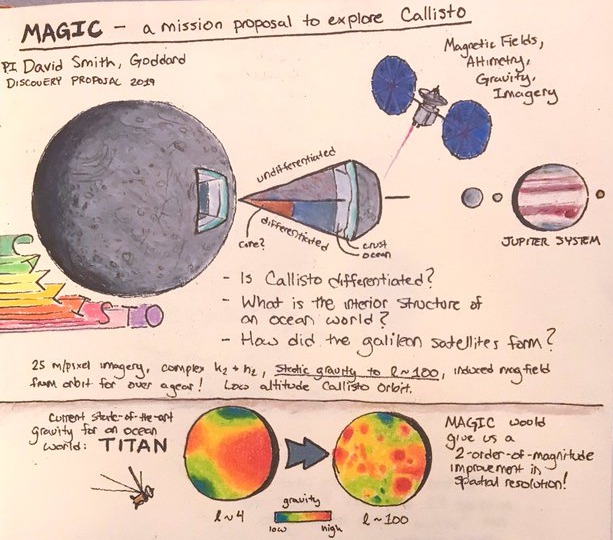 MAGIC – a mission proposal to explore Callisto
PI David Smith, Goddard
DISCOVERY PROPOSAL 2019
Magnetic Fields,
Altimetry,
Gravity,
Imagery
undifferentiated
differentiated
core?
crust
ocean
JUPITER SYSTEM
C
STO
- Is Callisto differentiated?
- What is the interior structure of
an ocean world?
- How did the galilean satellites form?
25 m/pixel imagery, complex k2 + h2, static gravity to l~100, induced mag field
from orbit for over a year! Low altitude Callisto orbit.
Current state-of-the-art
gravity for an ocean
world: TITAN
l~4
gravity
low high
l~100
MAGIC would
give us a
2-order-of-magnitude
improvement in
spatial resolution!